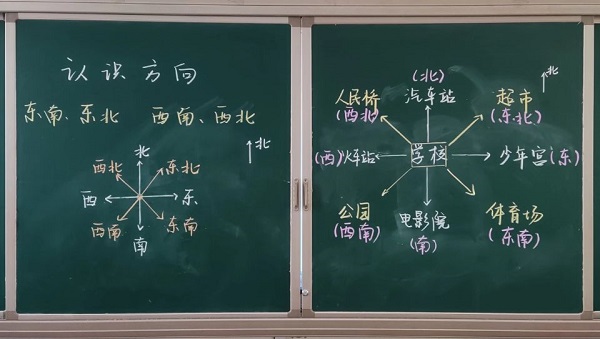 认识方向
东南、东北 西南、西北
北
北
西北 东北
西 东
西南 东南
南
(北)
北
人民桥 汽车站 超市
(西北) (东北)
(西)火车站 学校 少年宫(东)
公园 电影院 体育场
(西南) (南) (东南)